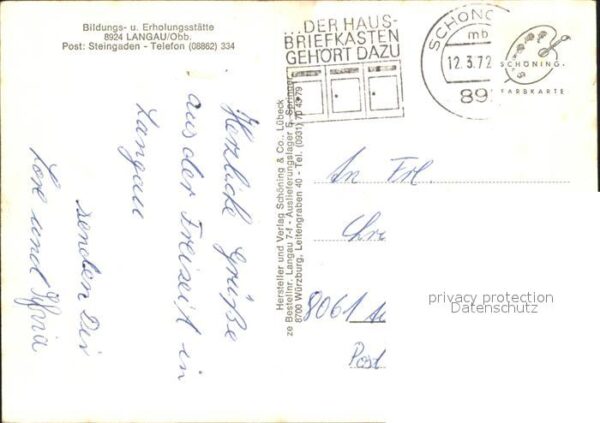 Bildungs- u. Erholungsstätte
8924 LANGAU/Obb.
Post: Steingaden - Telefon (08862) 334
...DER HAUS-
BRIEFKASTEN
GEHÖRT DAZU
SCHONG
mb
12.3.72
89
SCHÖNING
FARBKARTE
Herzliche Grüße
aus der Freizeit in
Langau
senden Dir
Lore und
Hersteller und Verlag Schöning & Co., Lübeck
ze Bestellnr. Langau 7-f - Auslieferungslager E. Springer
8700 Würzburg, Leitengraben 40 - Tel. (0931) 70 43 79
An Frl.
Chr
8061
Post
privacy protection
Datenschutz